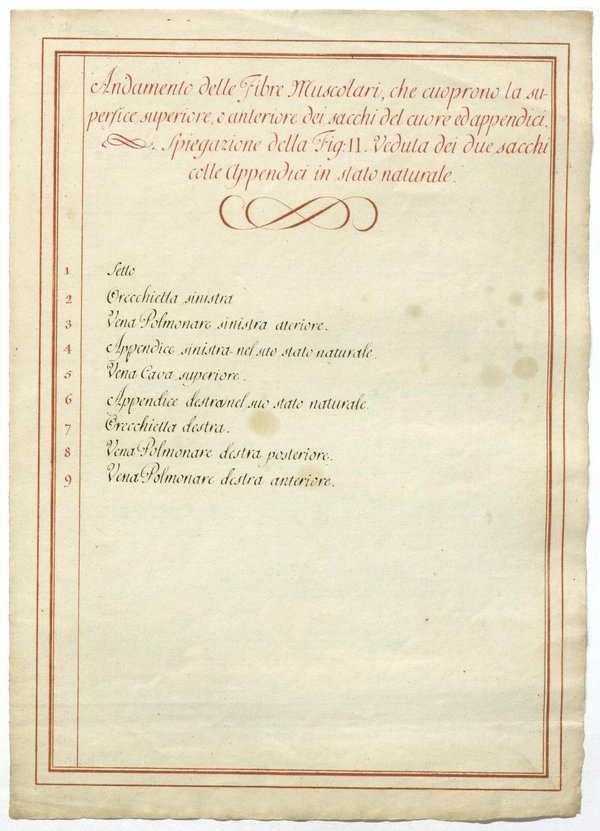 Andamento delle Fibre Muscolari, che cuoprono la su-
perfice superiore, e anteriore dei sacchi del cuore ed appendici.
Spiegazione della Fig: II. Veduta dei due sacchi
colle Appendici in stato naturale.
1 Setto
2 Orecchietta sinistra
3 Vena Polmonare sinistra ateriore.
4 Appendice sinistra nel suo stato naturale.
5 Vena Cava superiore.
6 Appendice destra nel suo stato naturale.
7 Orecchietta destra.
8 Vena Polmonare destra posteriore.
9 Vena Polmonare destra anteriore.